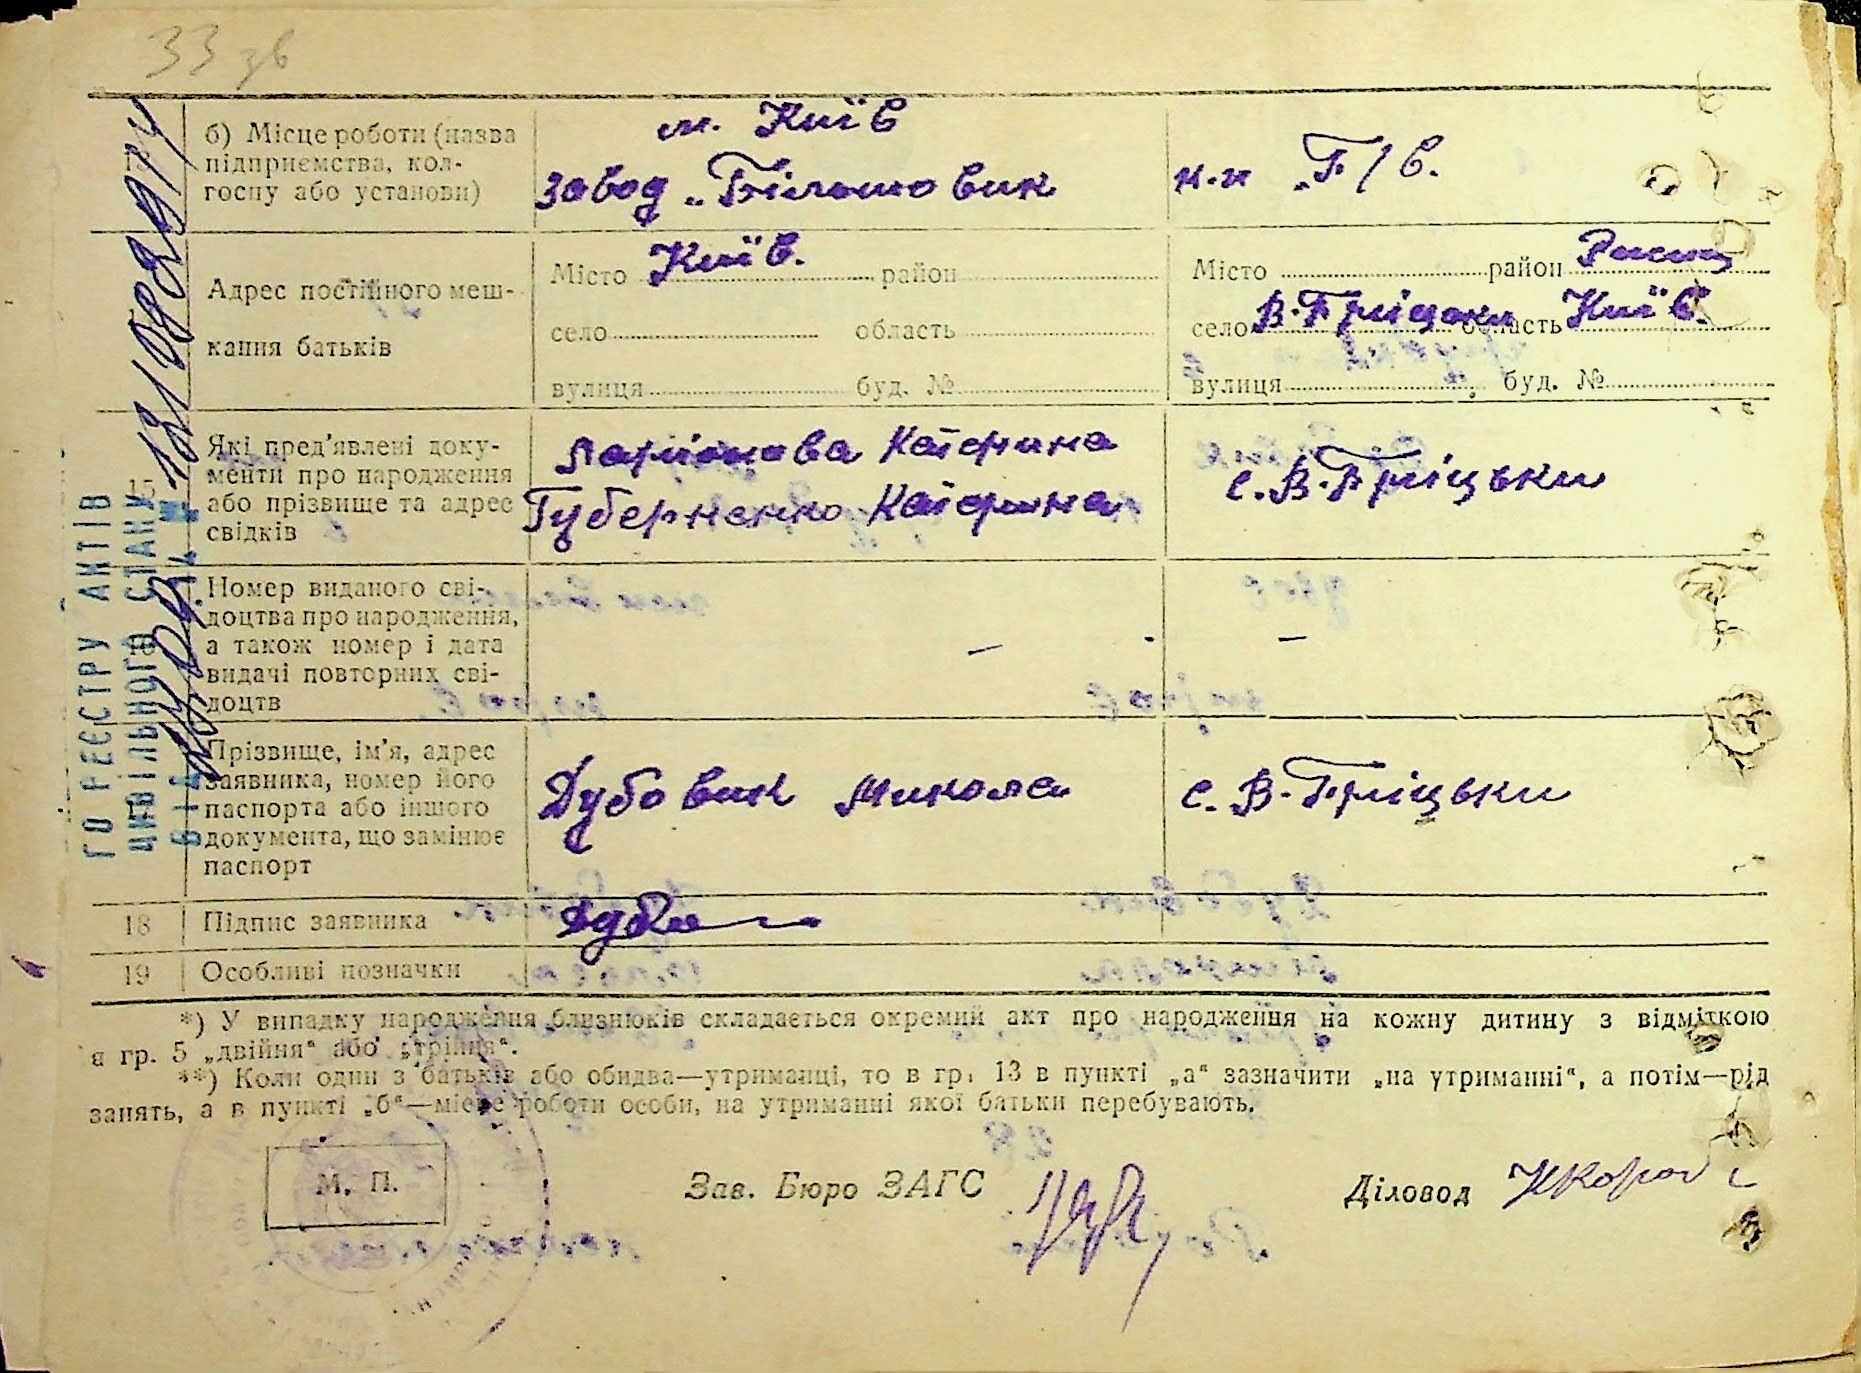 33 зв
б) Місце роботи (назва
підприємства, кол-
госпу або установи)
м. Київ
завод „Більшовик
к-п „Г/В.
Адрес постійного меш-
кання батьків
Місто Київ. район
село область
вулиця буд. №
Місто район
село В-Гріцьки область Київ.
вулиця буд. №
15
Які пред'явлені доку-
менти про народження
або прізвище та адрес
свідків
Ларіонова Катерина
Губерненко Катерина
с. В-Гріцьки
16
Номер виданого сві-
доцтва про народження,
а також номер і дата
видачі повторних сві-
доцтв
— —
Прізвище, ім'я, адрес
заявника, номер його
паспорта або іншого
документа, що замінює
паспорт
Дубовик Микола
с. В-Гріцьки
18 Підпис заявника
19 Особливі позначки
*) У випадку народження близнюків складається окремий акт про народження на кожну дитину з відміткою
в гр. 5 „двійня“ або „трійня“.
**) Коли один з батьків або обидва—утриманці, то в гр. 13 в пункті „а“ зазначити „на утриманні“, а потім—рід
занять, а в пункті „б“—місце роботи особи, на утриманні якої батьки перебувають.
М. П.
Зав. Бюро ЗАГС
Діловод
ГО РЕЄСТРУ АКТІВ
ЦИВІЛЬНОГО СТАНУ
ВІД